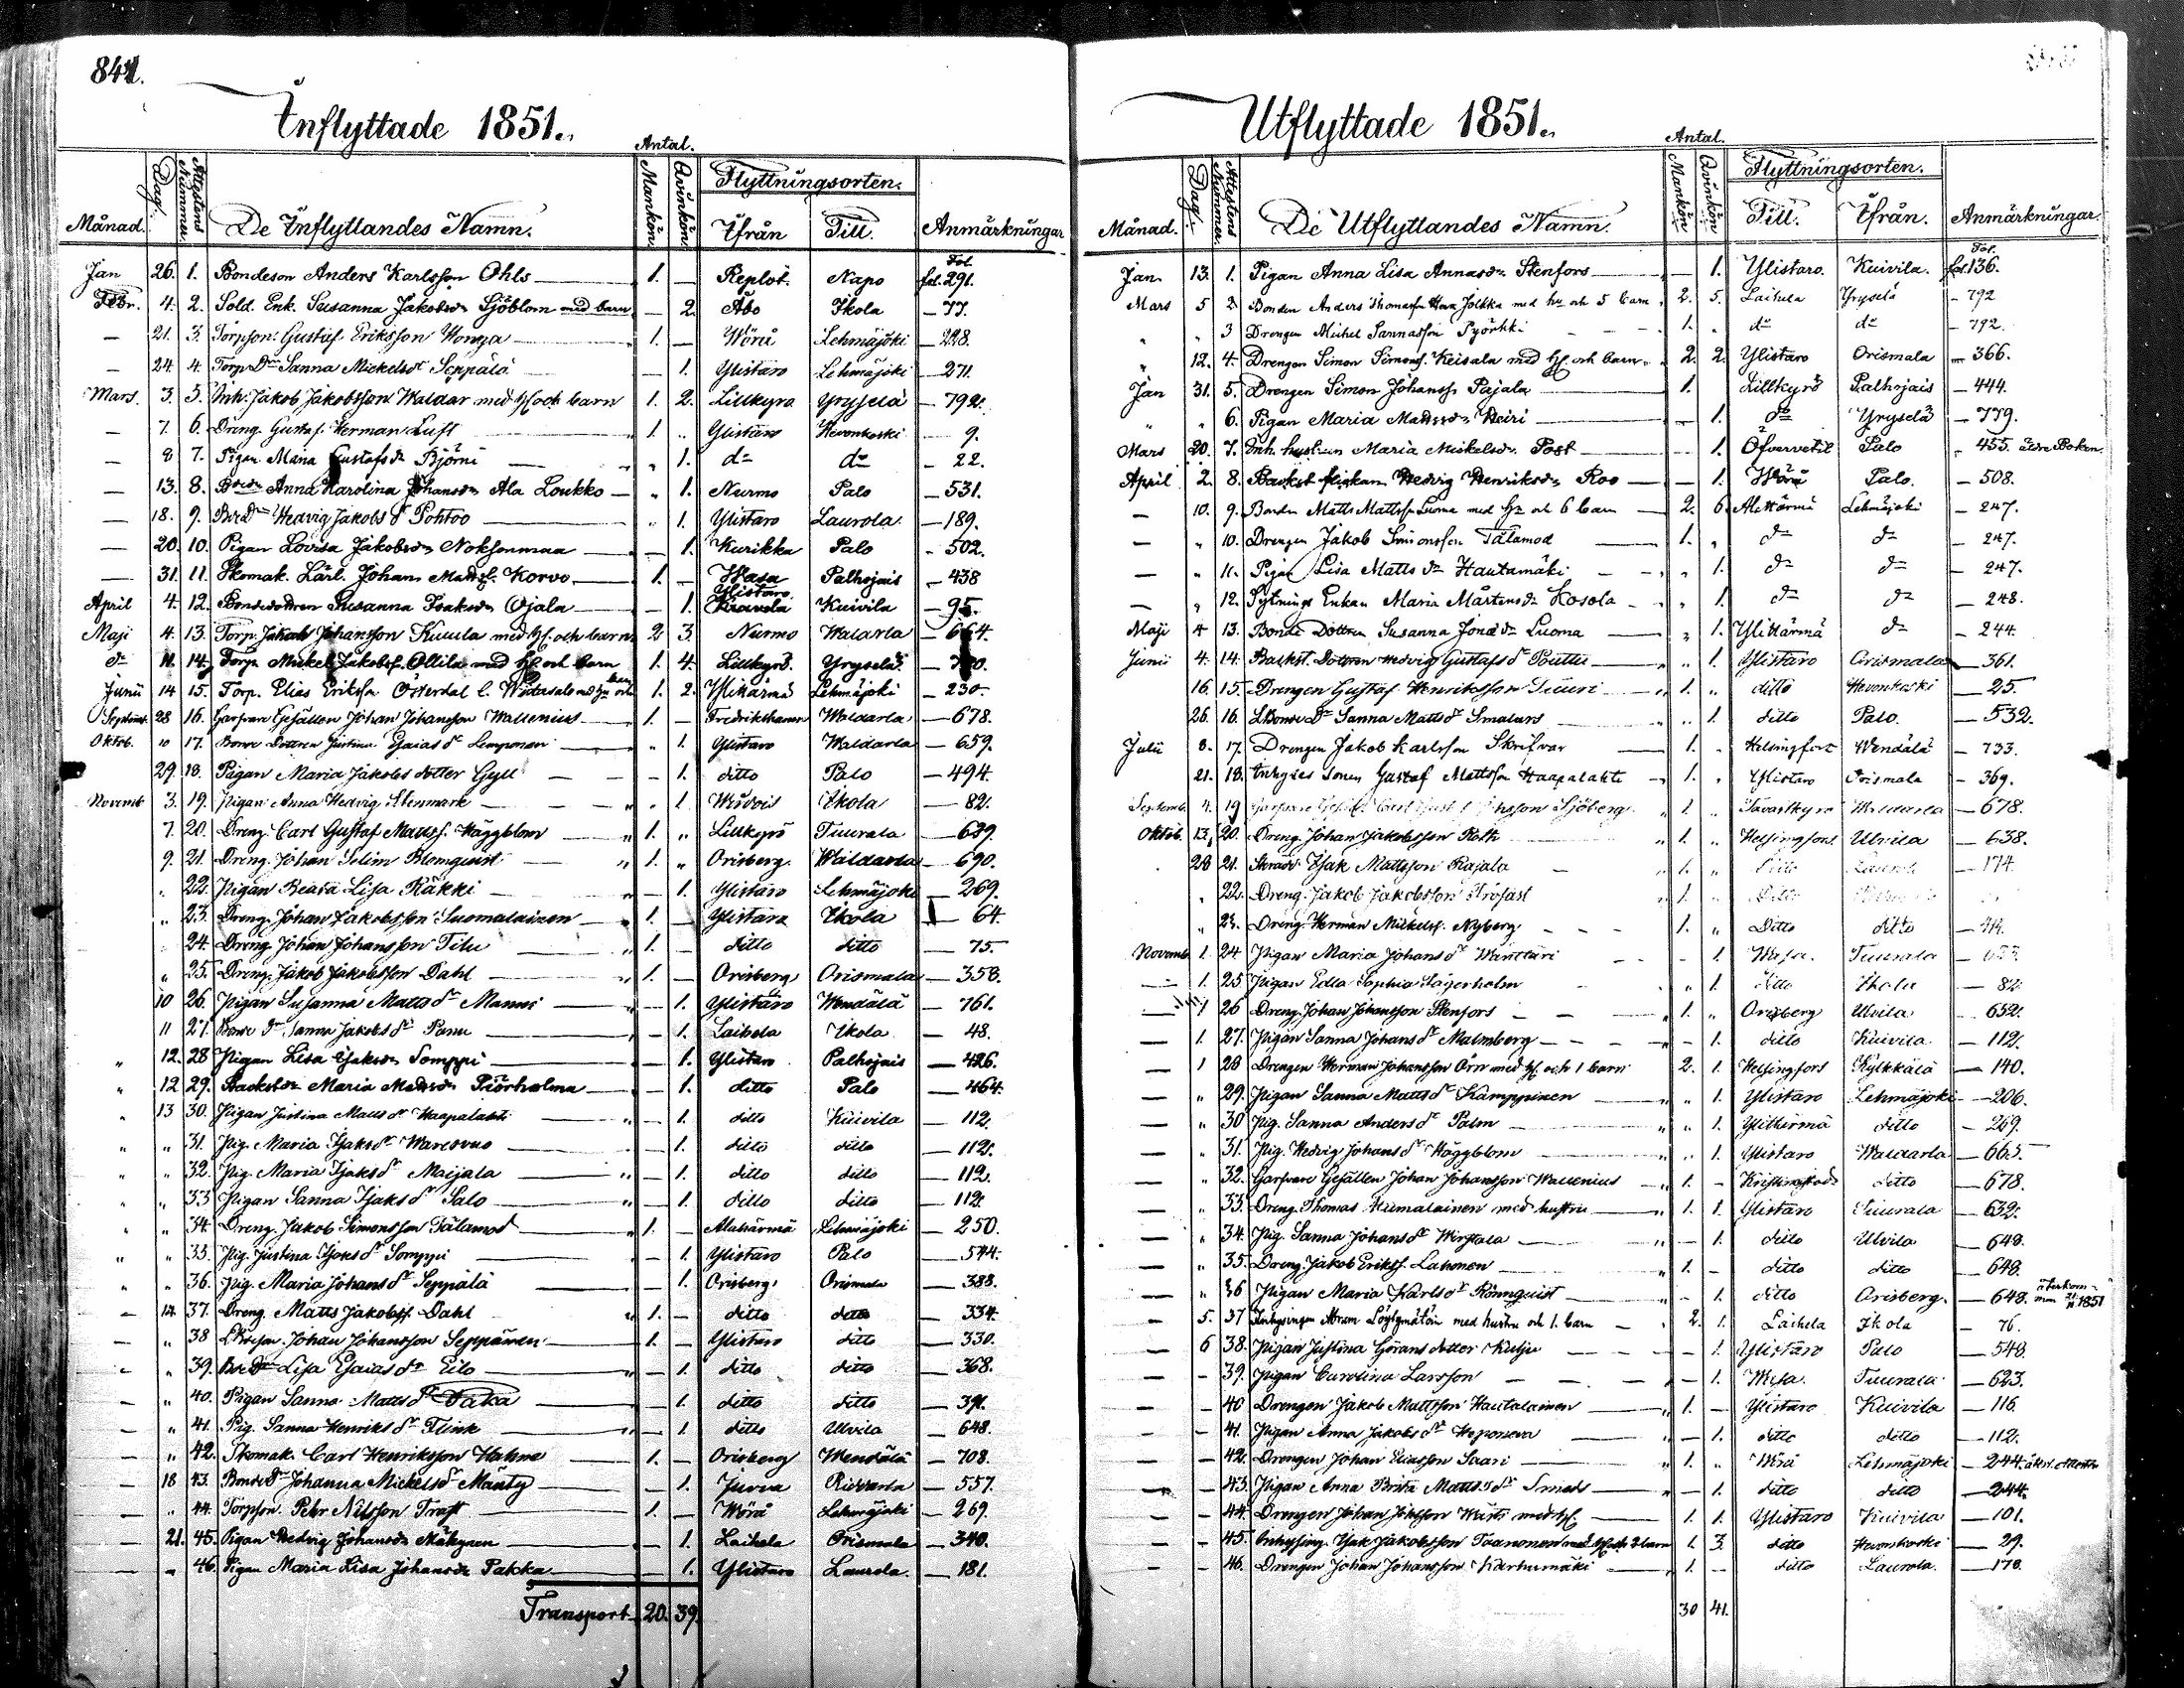 841.
Inflyttade 1851.
Månad. Dag. Attestens Nummer. De Inflyttandes Namn. Antal. Mankön. Qvinkön. Flyttningsorten. Ifrån Till. Anmärkningar
Jan 26. 1. Bondeson Anders Karlsson Ohls 1. — Replot. Napo fol. 291.
Febr. 4. 2. Sold. Enk. Susanna Jakobsdr Sjöblom med barn — 2. Åbo Ikola — 77.
— 21. 3. Torpson Gustaf Eriksson Wonga 1. — Wörå Lehmäjoki — 228.
— 24. 4. Torp.Dr Sanna Mickelsdr Seppälä — 1. Ylistaro Lehmäjoki — 271.
Mars. 3. 5. Inh. Jakob Jakobsson Waldar med H. och barn 1. 2. Lillkyro Yryselä — 792.
— 7. 6. Dreng. Gustaf Herman Luft 1. „ Ylistaro Hevonkoski — 9.
— 8 7. Pigan Maria Gustafsdr Björni „ 1. do do — 22.
— 13. 8. Anna Karolina Johansdr Ala Loukko „ 1. Nurmo Palo — 531.
— 18. 9. Hedvig Jakobsdr Pohtoo „ 1. Ylistaro Laurola — 189.
— 20. 10. Pigan Lovisa Jakobsdr Noksonmaa — 1. Kurikka Palo — 502.
— 31. 11. Skomak. Lärl. Johan Mattsf. Korvo 1. — Wasa Palhojais — 438
April 4. 12. Bondedottren Susanna Isaksdr Ojala — 1. Ylistaro Kuivila — 95.
Maji 4. 13. Torp. Jakob Johansson Kuula med H. och barn 2 3. Nurmo Waldarla — 664.
do 11. 14. Torp. Mickel Jakobsf. Ollila med H. och barn 1. 4. Lillkyrö. Yryselä
Junii 14 15. Torp. Elias Eriksson Österdal 1. 2. Ylihärmä Lehmäjoki — 230.
Septemb. 28 16. Garfvare Gesällen Johan Johansson Wallenius 1. — Fredrikshamn Waldarla — 678.
Oktob. 10 17. Bonde Dottren Justina Esaiasdr Lemponen „ 1. Ylistaro Waldarla — 659.
29. 18. Pigan Maria Jakobs dotter Gyll — 1. ditto Palo — 494.
Novemb 3. 19. Pigan Anna Hedvig Stenmark „ 1 Ikola — 82.
7. 20. Dreng. Carl Gustaf Mattsf. Häggblom 1. „ Lillkyro Tuurala — 689.
9. 21. Dreng. Johan Selim Blomquist 1. „ Orisberg Waldarla — 690.
„ 22. Pigan Beata Lisa Räkki — 1. Ylistaro Lehmäjoki — 269.
„ 23. Dreng. Johan Jakobsson Suomalainen 1. — Ylistaro Ikola — 64.
24. Dreng. Johan Johansson Tilu 1. — ditto ditto — 75.
„ 25. Dreng. Jakob Jakobsson Dahl 1. — Orisberg Orismala — 358.
10 26. Pigan Susanna Mattsdr Manni — 1. Ylistaro Wendälä — 761.
11 27. Bonde dr Sanna Jakobsdr Panu — 1. Laihela Ikola — 48.
„ 12. 28 Pigan Lisa Isaksdr Somppi — 1. Ylistaro Palhojais — 426.
„ 12 29. Maria Mattsdr — 1. ditto Palo — 464.
„ 13 30. Pigan Justina Mattsdr Haapalahti „ 1. ditto Kuivila — 112.
„ „ 31. Pig. Maria Isaksdr — 1. ditto ditto — 112.
„ „ 32. Pig. Maria Isaksdr Maijala — 1. ditto ditto — 112.
„ „ 33 Pigan Sanna Isaksdr Salo — 1. ditto ditto — 112.
„ „ 34. Dreng. Jakob Simonsson Tålamod 1. — Alahärmä Lehmäjoki — 250.
„ „ 35. Pig. Justina Isaksdr Somppi — 1. Ylistaro Palo — 544.
„ „ 36. Pig. Maria Johansdr Seppälä — 1. Orisberg Orismala — 388.
— 14 37. Dreng. Matts Jakobsf. Dahl 1. — ditto ditto — 334.
— „ 38 Johan Johansson Seppänen 1. — Ylistaro ditto — 330.
— „ 39. Lisa Esaiasdr Eilo — 1. ditto ditto — 368.
— „ 40. Pigan Sanna Mattsdr Daka — 1. ditto ditto — 391.
— „ 41. Pig. Sanna Henriksdr Flink — 1. ditto Ulvila — 648.
— „ 42. Skomak. Carl Henriksson Hahne 1. — Orisberg Wendälä — 708.
— 18 43. Bondedr Johanna Mickelsdr Mänty — 1. Jurva — 557.
— „ 44. Torpson. Pehr Nilsson Traff 1. — Wörå Lehmäjoki — 269.
— 21. 45. Pigan Hedvig Johansdr Mäkynen — 1. Laihela Orismala — 340.
— „ 46. Pigan Maria Lisa Johansdr Pakka — 1. Ylistaro Laurola — 181.
Transport 20. 39.
Utflyttade 1851.
Månad. Dag. Attestens Nummer. De Utflyttandes Namn. Antal. Mankön. Qvinkön. Flyttningsorten. Till. Ifrån. Anmärkningar
Jan. 13. 1. Pigan Anna Lisa Annasdr Stenfors — 1. Ylistaro. Kuivila. fol. 136.
Mars 5 2. Bonden Anders Thomasson Jolkka med hu och 5 barn 2. 5. Laihela Yryselä — 792
„ „ 3 Drengen Mickel Sannasson Pyörhki 1. „ do do — 792.
„ 12. 4. Drengen Simon Simonsf. Keisala med H. och barn 2. 2. Ylistaro Orismala — 366.
Jan 31. 5. Drengen Simon Johansf. Pajala 1. Lillkyrö Palhojais — 444.
„ „ 6. Pigan Maria Mattsdr Heiri — 1. do Yryselä — 779.
Mars 20. 7. Inh. hustrun Maria Mickelsdr Post 1. Öfvervetil Palo — 455. äldre Boken.
April 2. 8. Backst. flickan Hedvig Henriksdr Roo — 1. Wörå Palo. — 508.
— 10. 9. Bonden Matts Mattsson Luoma med hu och 6 barn 2. 6. Alahärmä Lehmäjoki — 247.
— „ 10. Drengen Jakob Simonsson Tålamod 1. „ do do — 247.
— „ 11. Pigan Lisa Mattsdr Hautamäki „ 1. do do — 247.
— „ 12. Sytnings Enkan Maria Mårtensdr Kosola „ 1. do do — 248.
Maji 4 13. Bonde Dottren Susanna Jonædr Luoma „ 1. Ylihärmä do — 244.
Junii 4. 14. Backst. Dottren Hedvig Gustafsdr Pouttu „ 1. Ylistaro Orismala — 361.
16. 15. Drengen Gustaf Henriksson Tuuri 1. „ ditto Hevonkoski — 25.
26. 16. Sanna Mattsdr Smalars „ 1. ditto Palo. — 532.
Julii 8. 17. Drengen Jakob Karlsson Skrifvar 1. „ Helsingfors Wendälä — 733.
21. 18. Inhyses Sonen Gustaf Mattsson Haapalahti 1. „ Ylistaro Orismala — 369.
Septemb. 4. 19 Garfvare Sjöberg 1. „ Waldarla — 678.
Oktob. 13. 20. Dreng. Johan Jakobsson Roth 1. „ Helsingfors Ulvila — 638.
28 21. Isak Mattsson Rajala 1. „ Ditto — 174.
„ 22. Dreng. Jakob Jakobsson Trofast 1. Ditto
„ 23. Dreng. Herman Mickelsf. Nyberg 1. „ Ditto ditto
Novemb. 1. 24 Pigan Maria Johansdr Wänttäri — 1. Wasa. Tuurala
— 1. 25 Pigan Edla Sophia Lägerholm „ 1. ditto Ikola — 82.
— 1 26 Dreng. Johan Johansson Stenfors 1. „ Orisberg Ulvila — 652.
— 1. 27. Pigan Sanna Johansdr Malmberg — 1. ditto Kuivila — 112.
— 1 28 Drengen Herman Johansson Örn med H. och 1 barn 2. 1. Helsingfors Kylkkälä — 140.
— „ 29. Pigan Sanna Mattsdr Kamppinen „ 1. Ylistaro Lehmäjoki — 206.
— „ 30 Pig. Sanna Andersdr Palm „ 1. Ylihärmä ditto — 269.
— „ 31. Pig. Hedvig Johansdr Häggblom „ 1. Ylistaro Waldarla — 665.
— „ 32. Garfvare Gesällen Johan Johansson Wallenius 1. — Kristinestad ditto — 678.
— „ 33. Dreng. Thomas Kumalainen med hustru 1. 1. Ylistaro Tuurala — 632.
— „ 34. Pig. Sanna Johansdr — 1. ditto Ulvila — 648.
— „ 35. Dreng. Jakob Eriksf. Lahonen 1. — ditto ditto — 648.
— „ 36 Pigan Maria Karlsdr Rönnquist — 1. ditto Orisberg — 648. återkommen 1851
— 5. 37 Inhysingen Abram med hustru och 1. barn 2. 1. Laihela Ikola — 76.
— 6 38. Pigan Justina Görans dotter Kulju — 1. Ylistaro Palo — 548.
— — 39. Pigan Carolina Larsson — 1. Wasa. Tuurala — 623.
— — 40 Drengen Jakob Mattsson Hautalainen 1. — Ylistaro Kuivila — 116.
— — 41. Pigan Anna Jakobsdr Heponeva — 1. ditto ditto — 112.
— — 42. Drengen Johan Eliasson Saari 1. „ Wörå Lehmäjoki — 244.
— — 43. Pigan Anna Brita Mattsdr Smeds — 1. ditto ditto — 244.
— — 44. Drengen Johan med H. 1. 1. Ylistaro Kuivila — 101.
— — 45. Inhysing. Isak Jakobsson med H. och 2 barn 1. 3. ditto Hevonkoski — 29.
— — 46. Drengen Johan Johansson Karhumäki 1. — ditto Laurola. — 178.
30 41.